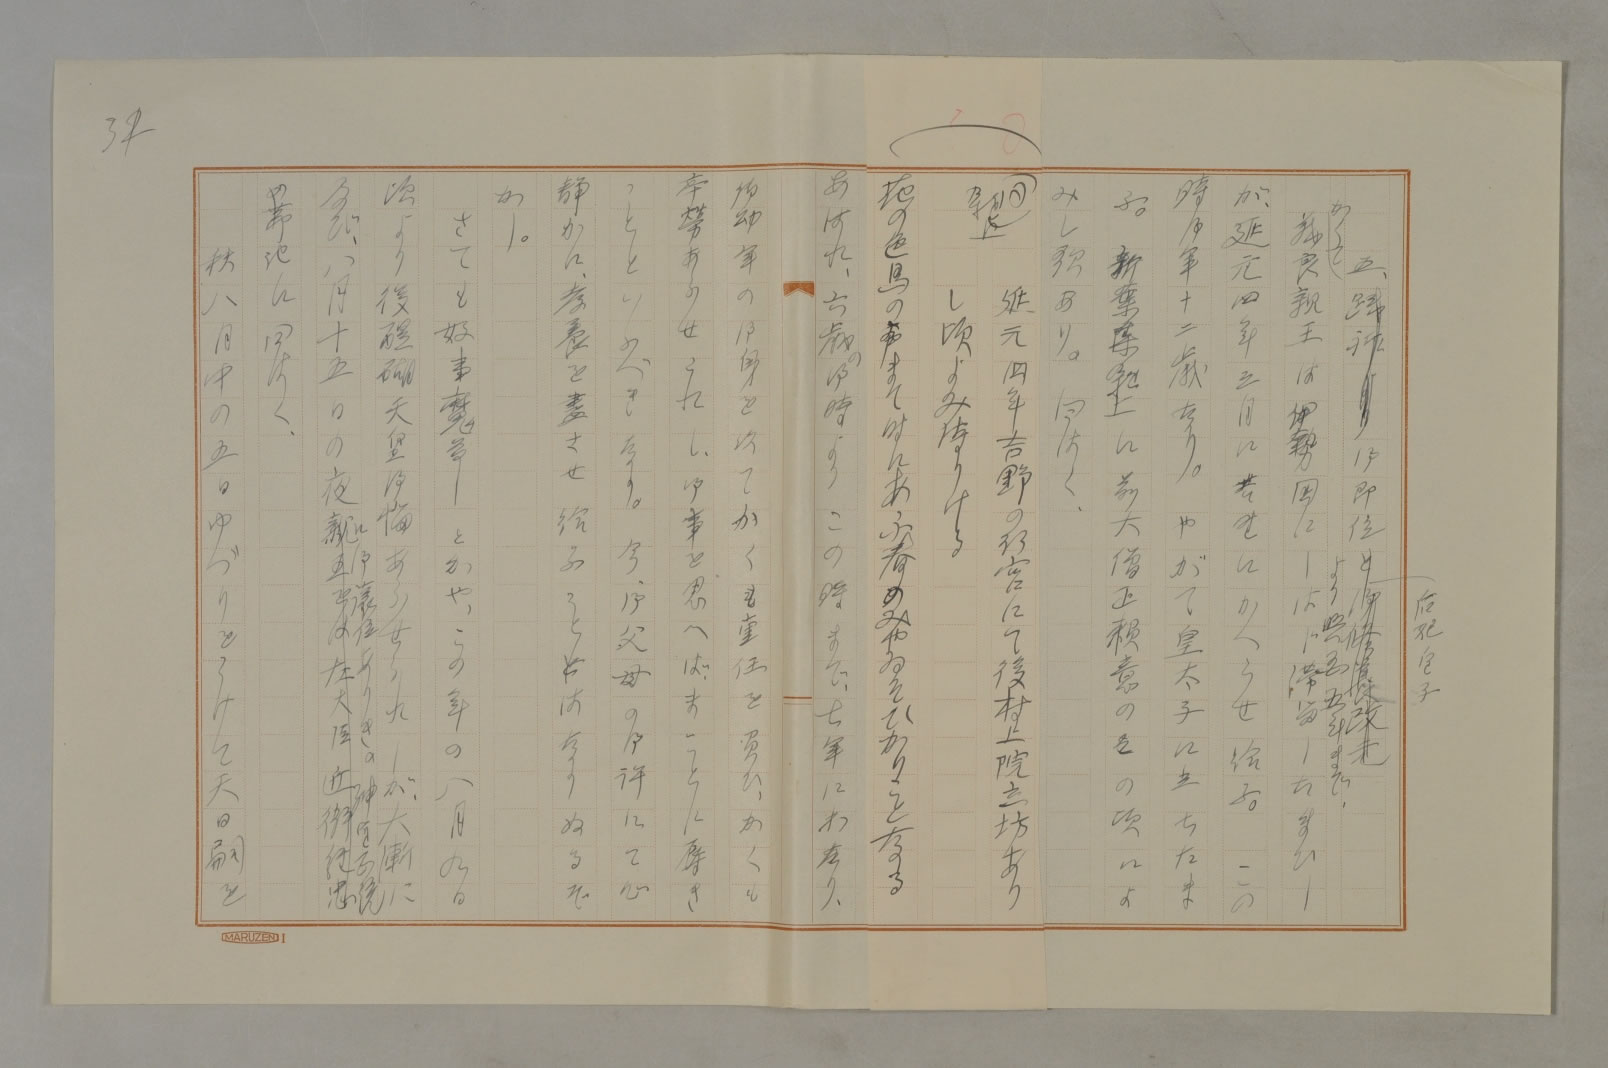 34
后妃皇子
五、践祚 御即位
より興国五年まで、
かくて
義良親王は伊勢国にしばし滞留したまひし
が、延元四年三月に芳野にかへらせ給ふ。この
時御年十二歳なり。やがて皇太子に立ちたま
ふ。新葉集
に前大僧正頼意のその頃によ
みし歌あり。曰はく、
延元四年吉野の行宮にて後村上院立坊あり
し頃よみ侍りける
花の色鳥の
まて時にあふ春のみやゐそひかりことなる
あはれ、六歳の御時よりこの時まで、七年にわたり、
御幼年の御身を以てかくも重任を負ひ、かくも
辛労あらせられし、御事を思へばまことに辱き
ことといふべきなり。今、御父母の御許にて心
静かに、孝養を盡させ給ふこととはなりぬるぞ
かし。
さても好事魔多しとかや、この年の八月九日
頃より後醍醐天皇御悩あらせられしが、大漸に
及び、八月十五日の夜
に御譲位ありき。神皇正統
親王
左大臣近衛経忠
の第に
曰はく、
秋八月中の五日ゆづりをうけて天日嗣を
MARUZEN I